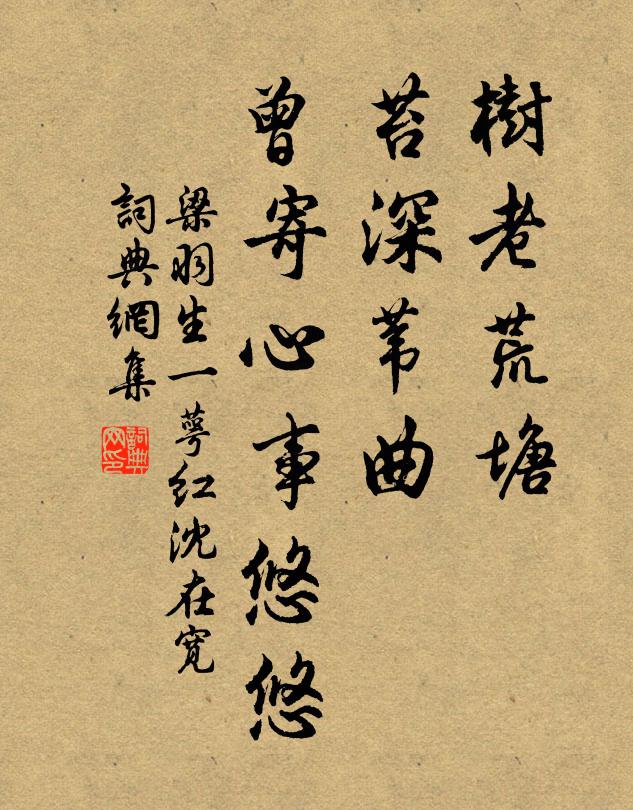 樹老荒塘
苔深苇曲
曾寄心事悠悠
梁羽生一萼红沈在寛
詞典網集
詞典网印